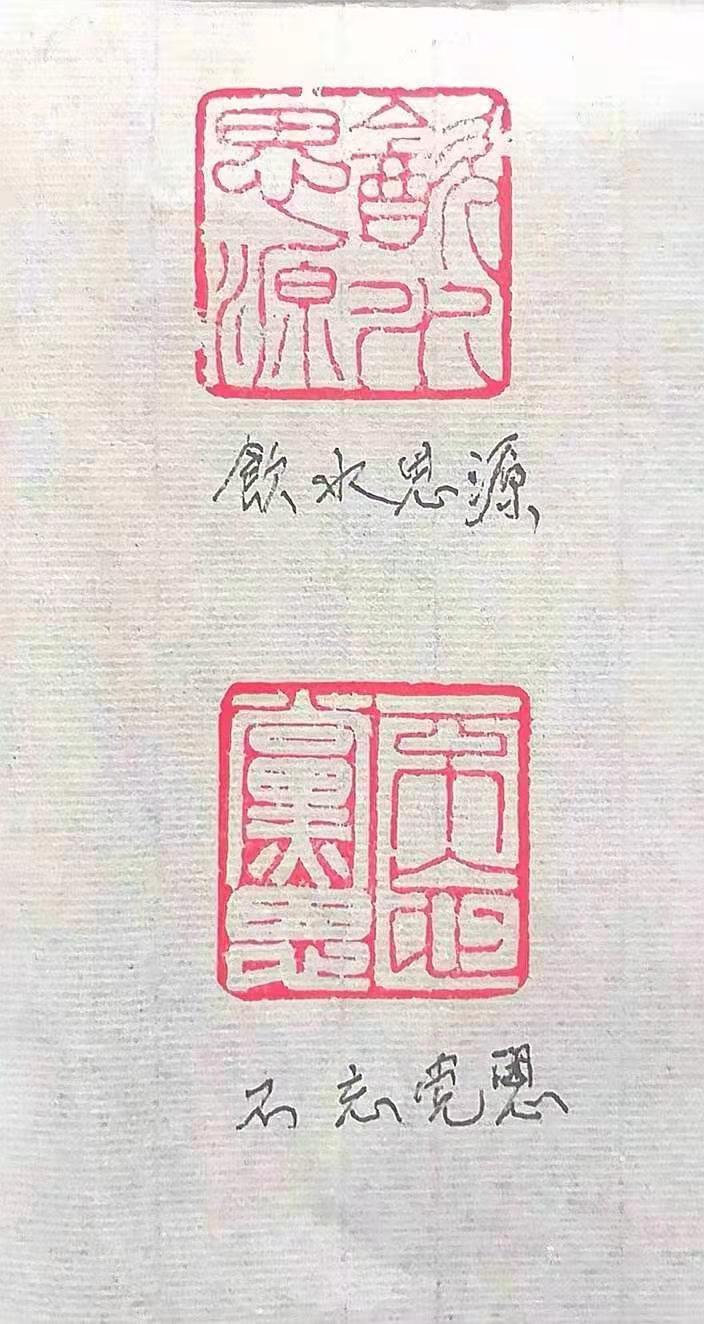 飲水思源
飲水思源
不忘黨恩
不忘党恩